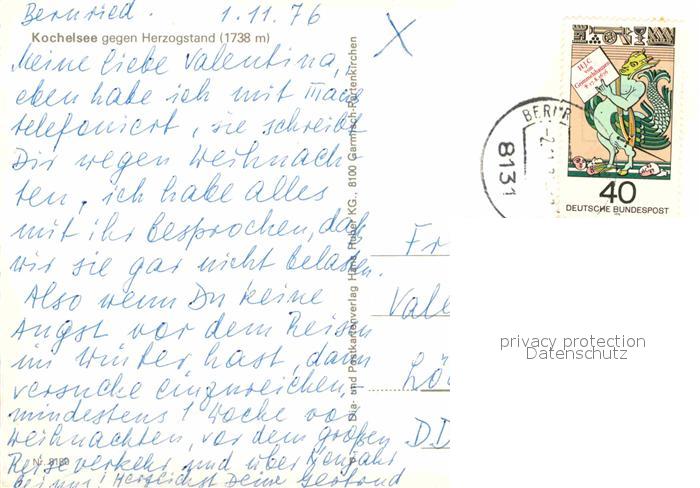 Bernried. 1.11.76
Kochelsee gegen Herzogstand (1738 m)
Meine liebe Valentina,
eben habe ich mit
telefoniert, sie schreibt
Dir wegen Weihnach
ten, ich habe alles
mit ihr besprochen, daß
wir sie gar nicht belasten.
Also wenn Du keine
Angst vor dem Reisen
im Winter hast, dann
versuche einzureichen,
mindestens 1 Woche vor
Weihnachten, vor dem großen
Reiseverkehr und über Neujahr
bei uns! Herzlichst Deine Gertrud
Nr. 8180
Dia- und Postkartenverlag Hans Huber KG., 8100 Garmisch-Partenkirchen
X
H.J.C.
von
Grimmelshausen
40
DEUTSCHE BUNDESPOST
8131
BERNR
Fr
Vale
Lö
DD
privacy protection
Datenschutz